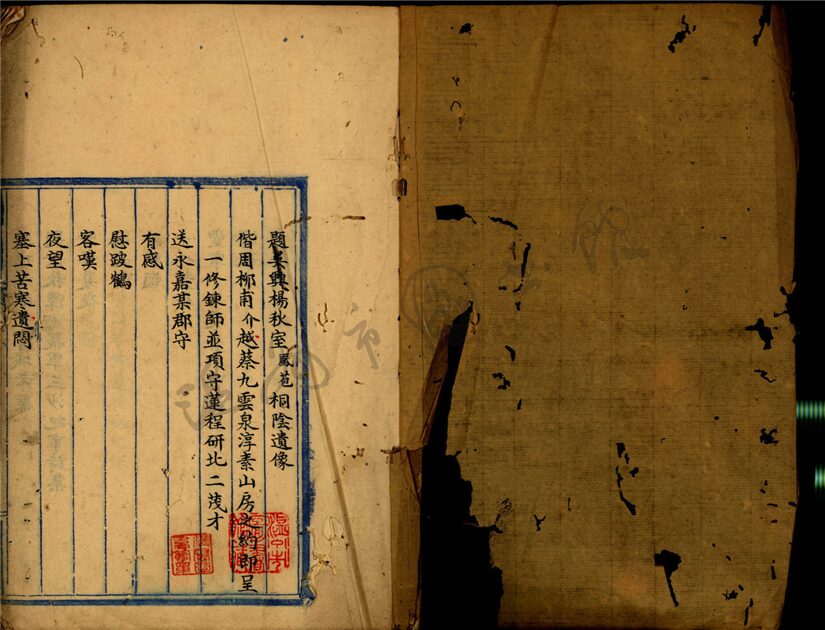 題吳興楊秋室鳳苞桐陰遺像
偕周柳甫介越蔡九雲泉淳素山房之約即呈
一修鍊師並項守蓮程研北二茂才
送永嘉某郡守
有感
慰跛鶴
客嘆
夜望
塞上苦寒遺悶